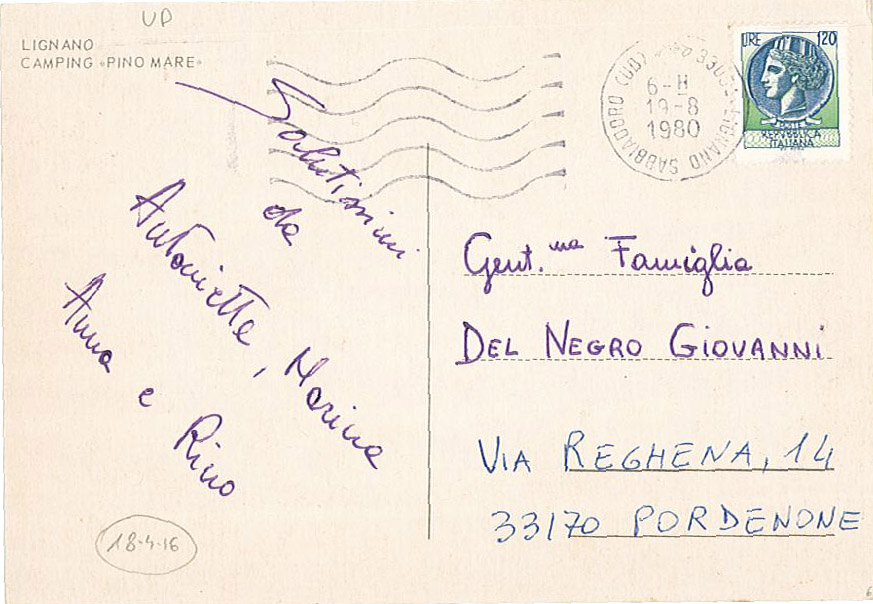 UD
LIGNANO
CAMPING «PINO MARE»
Salutissimi
da
Antonietta, Marina
Anna e Rino
18-4-16
33054 LIGNANO SABBIADORO (UD)
6-H
19-8
1980
LIRE 120
POSTE
REPVBBLICA
ITALIANA
Gent.ma Famiglia
DEL NEGRO GIOVANNI
VIA REGHENA, 14
33170 PORDENONE